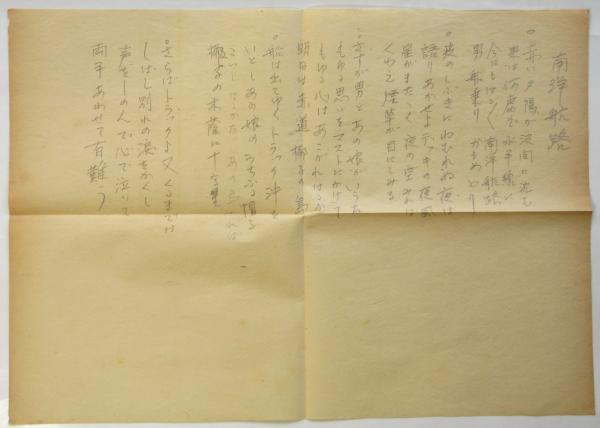 南洋航路
○赤い夕陽が波間に沈む
果は何處か水平線か
今日もはるばる南洋航路
男船乗りかもめどり
○波のしぶきにねむれぬ夜は
語りあかせよデッキの夜風
星がまたゝく夜の空みれば
くわえ煙草が目にしみる
○さすが男とあの娘がいうた
もゆる思いをマストにかけて
もゆる心はあこがれはるか
明日は赤道椰子の島
○船は出てゆくトラック沖を
いとしあの娘のうちふる帽子
あの島みれば
椰子の木蔭に十字星
○さらばトラックよ又くるまでは
しばし別れの涙をかくし
声をしのんで心で泣いて
両手あわせて有難う